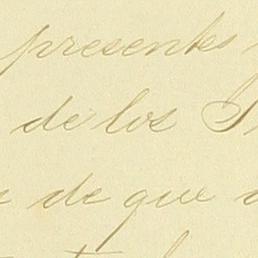 presentes
de los
de que